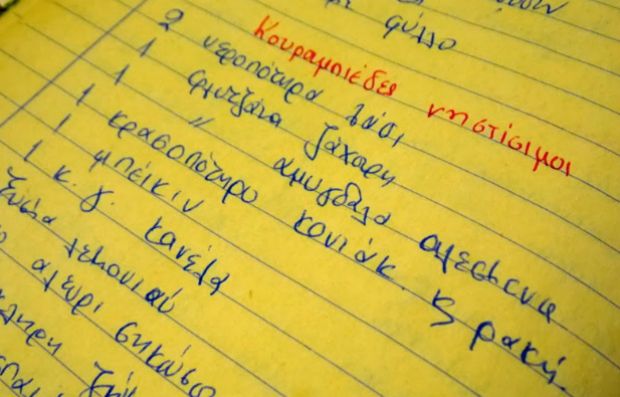 φύλλο
Κουραμπιέδες νηστίσιμοι
2 νεροπότηρα
1 φλυτζάνα ζάχαρη
1 " αμυγδαλα αλεσμενα
1 κρασοπότηρο κονιάκ ρακή
1 μπέικιν
1 κ. γ. κανέλα
ξύσμα λεμονιού
αλευρι σηκώσει